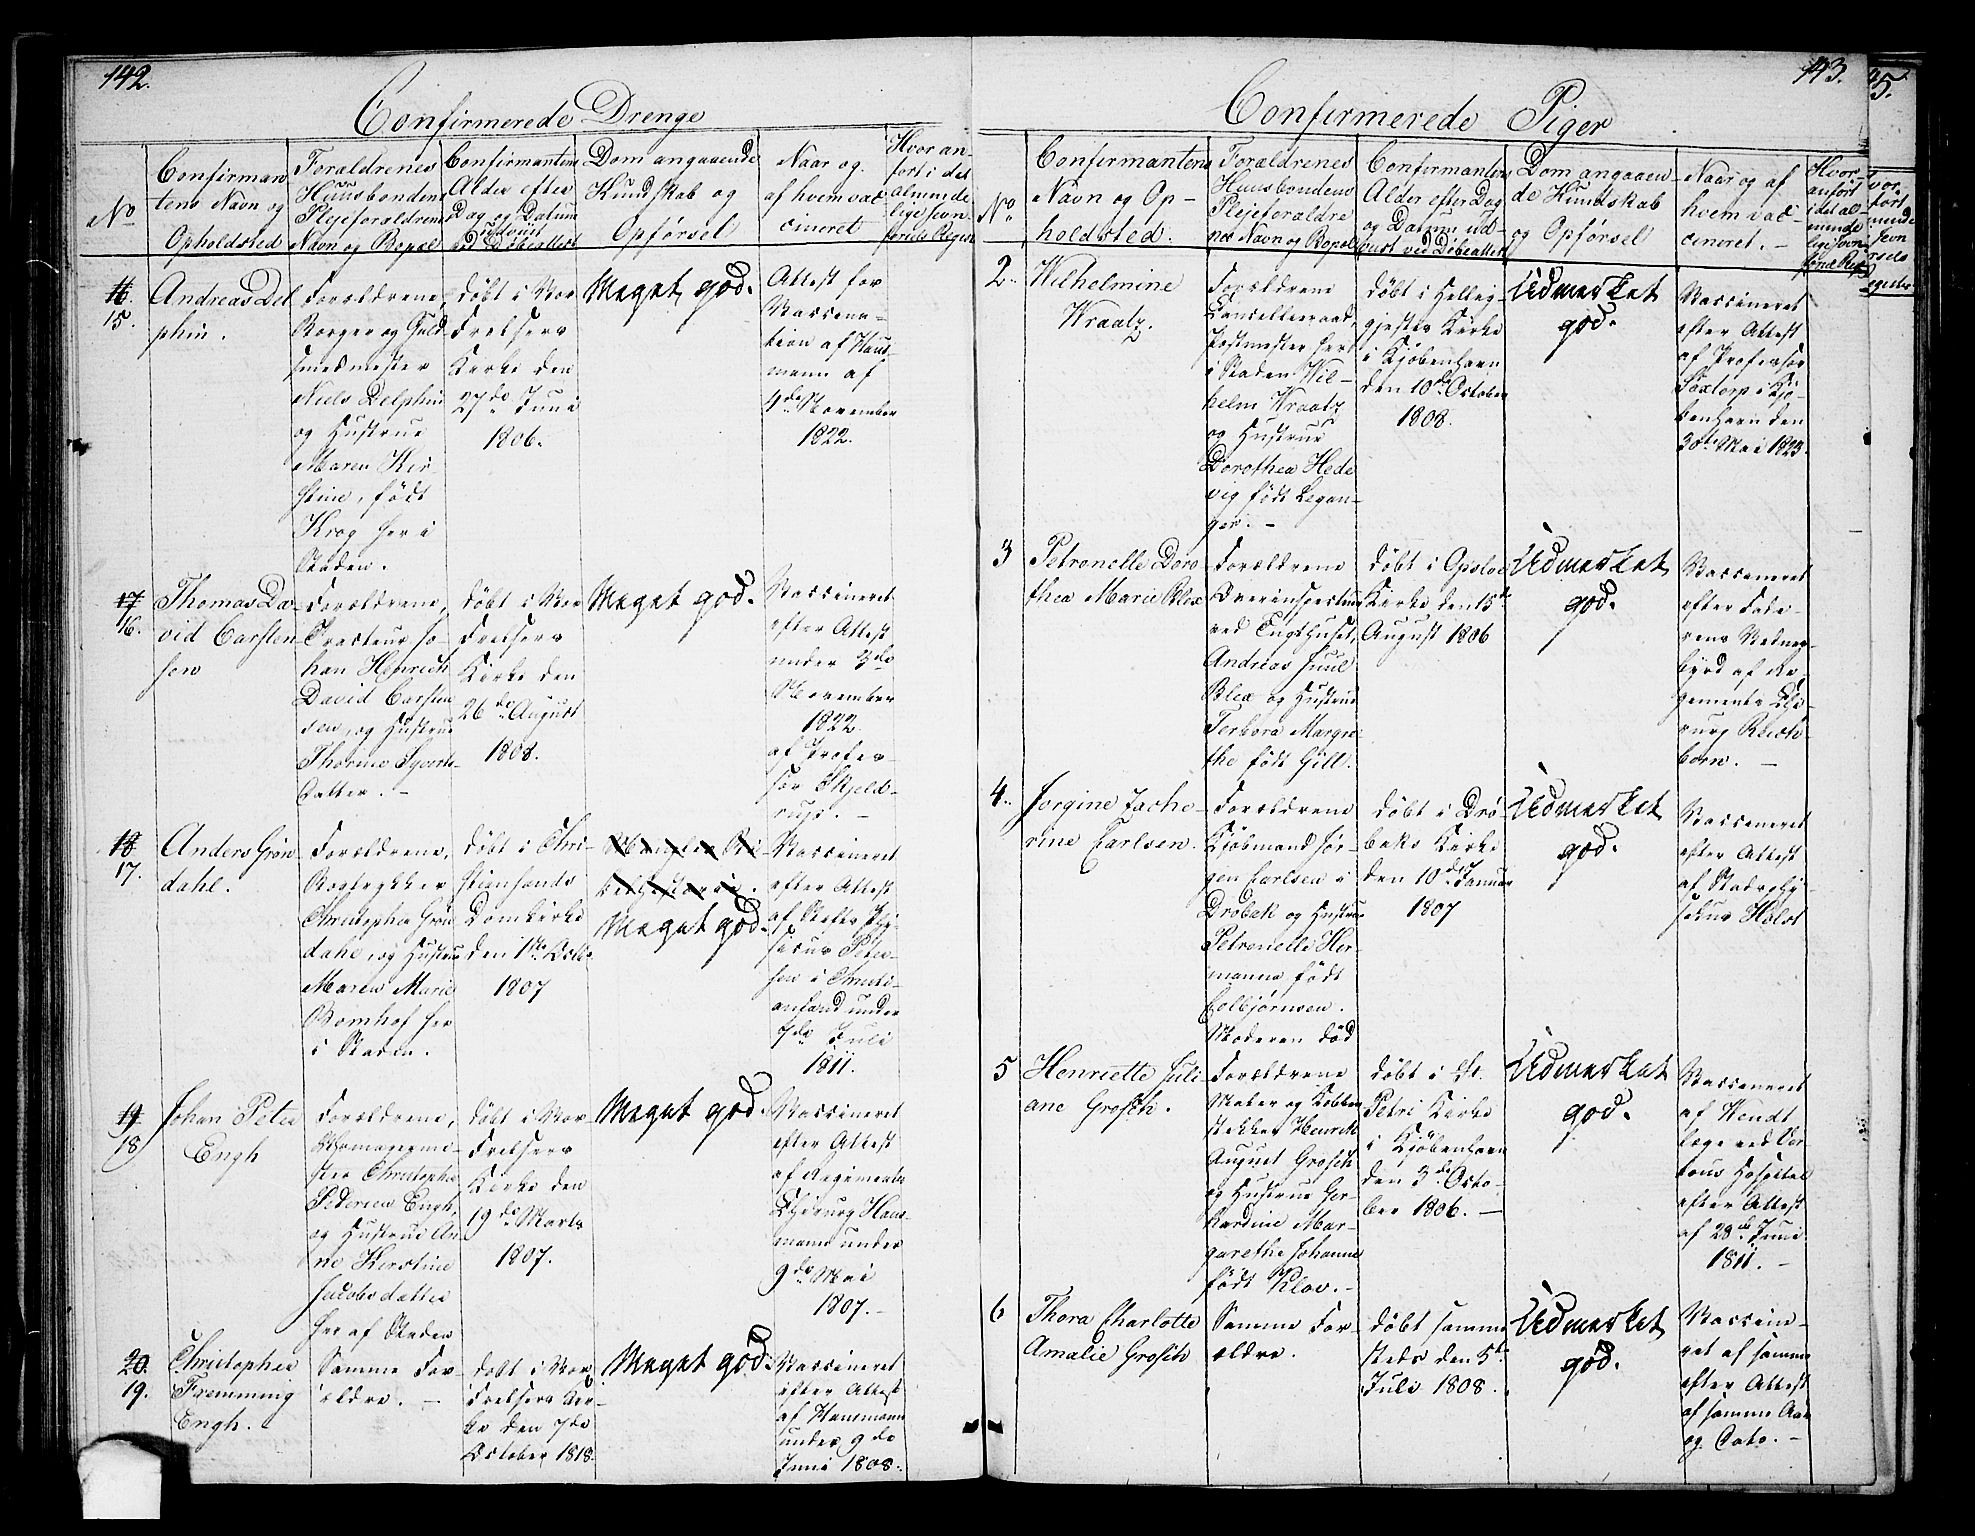 142.
Confirmerede Drenge
No
Confirman
tens Navn og
Opholdsted
Forældrenes
Huusbondens
Plejeforældrenes
Navn og Bopæl
Confirmantens
Alder efter
Dag og Datum
udviist
ved Döbeattest
Dom angaaende
Kundskab og
Opförsel
Naar og
af hvem vac
cineret
Hvor an-
fört i det
alminde
lige Jevn
förels Regist
16.
15.
Andreas Del
phin.
Forældrene,
Borger og Guld
smedmester
Niels Delphin
og Hustrue
Maren Kir-
stine, född
Krog her i
Staden.
döbt i Vor
Frelsers
Kirke den
27de Juni
1806.
Meget god.
Attest for
Vaccina-
tion af Haus-
mann af
4de November
1822.
17
16.
Thomas Da-
vid Carsten
sen
Forældrene,
Tracteur Jo-
han Henrich
David Carsten
sen, og Hustrue
Thorine Syverts-
datter. -
döbt i Vor
Frelsers
Kirke den
26de August
1808.
Meget god.
Vaccineret
efter Attest
under 3de
November
1822
af Profes-
sor Skjeld-
rup. -
18
17.
Anders Grön
dahl.
Forældrene,
Bogtrykker
Christopher Grön
dahl, og Hustrue
Maren Marie
Bomhof her
i Staden.
döbt i Chri-
stiansands
Domkirke
den 1ste Octbr
1807
Meget god.
Vaccineret
efter Attest
af Stifts Phy-
sicus Peter-
sen i Christi-
ansand under
7de Juli
1811.
19
18
Johan Peter
Engh
Forældrene,
Christopher
Pedersen Engh,
og Hustrue An-
ne Kirstine
Jacobsdatter
her af Staden
döbt i Vor
Frelsers
Kirke den
19de Marts
1807.
Meget god.
Vaccineret
efter Attest
af Regiments
Chirurg Haus-
mann under
9de Mai
1807. -
20.
19.
Christopher
Flemming
Engh.
Samme For-
ældre. -
döbt i Vor
Frelsers Kir-
ke den 7de
October 1818.
Meget god.
Vaccineret
efter Attest
af Hausmann
under 9de
Juni 1808.
143.
5.
Confirmerede Piger
No
Confirmantens
Navn og Op-
holdsted.
Forældrenes
Huusbondens
Plejeforældre
nes Navn og Bopæl
Confirmantens
Alder efter Dag
og Datum ud-
viist ved Döbeattest
Dom angaaen-
de Kundskab
og Opförsel
Naar og af
hvem vac-
cineret. -
Hvor
anfört
i det al-
minde
lige Jevn
2..
Wilhelmine
Kraatz.
Forældrene
Cancelleeraad,
Postmester her
i Staden Wil-
helm Kraatz
og Hustrue
Dorothea Hede
vig födt Legan-
ger. -
döbt i Hellig-
gjestes Kirke
i Kjöbenhavn
den 10de October
1808.
Udmærket
god.
Vaccineret
efter Attest
af Professor
Saxtorp i Kjö-
benhavn den
30te Mai 1823.
3
Petronelle Doro
thea Marie Blix
Forældrene
Overinspecteur
ved Tugthuset,
Andreas Juul
Blix og Hustrue
Terbora Margre-
the födt Gill.
döbt i Opsloe
Kirke den 15de
August 1806
Udmærket
god.
Vaccineret
efter Fade-
rens Vidnes-
byrd af Re-
giments Chi-
rurg
4..
Jorgine Zache-
rine Carlsen.
Forældrene
Kjöbmand Jör-
gen Carlsen i
Dröbak og Hustrue
Petronelle Her-
manna födt
Colbjörnsen.
Moderen död
döbt i Drö-
baks Kirke
den 10de Januar
1807
Udmærket
god.
Vaccineret
efter Attest
af Stadsphy-
sicus Holst
5
Henriette Juli-
ane Grosch.
Forældrene
Maler og Kobber
stikker Henrich
August Grosch
og Hustrue Ger-
hardine Mar-
garethe Johanne
födt Klov. -
döbt i St.
Petri Kirke
i Kjöbenhavn
den 3de Octo-
ber 1806. -
Udmærket
god.
Vaccineret
af Wendt
Læge ved Var-
tous Hospital
efter Attest
af 28de Juni
1811. -
6
Thora Charlotte
Amalie Grosch
Samme For-
ældre.
döbt samme
steds den 5te
Juli 1808.
Udmærket
god.
Vaccine-
ret af samme
efter Attest
af samme Aar
og Dato. -